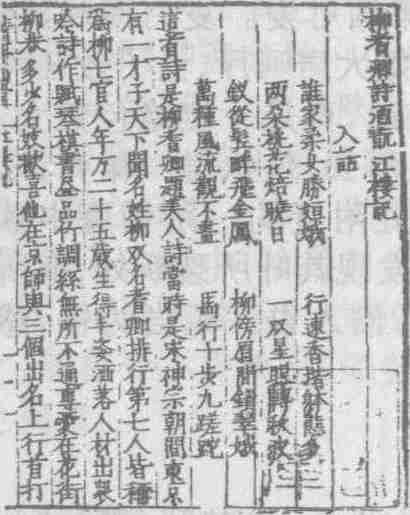 柳耆卿詩酒翫江樓記
入話
誰家柔女勝姮娥　行速香堦體態多
兩朶桃花焙曉日　一双星眼轉秋波
釵從鬓畔飛金鳳　柳傍眉間鎖翠娥
萬種風流觀不盡　馬行十步九蹉跎
這首詩是柳耆卿題美人詩當時是宋神宗朝間東京
有一才子天下聞名姓柳双名耆卿排行第七人皆稱
為柳七官人年方二十五歲生得丰姿洒落人材出衆
吟詩作賦琴棋書畫品竹調絲無所不通專愛在花街
柳巷多少名妓歡喜他在京師與三個出名上行首打